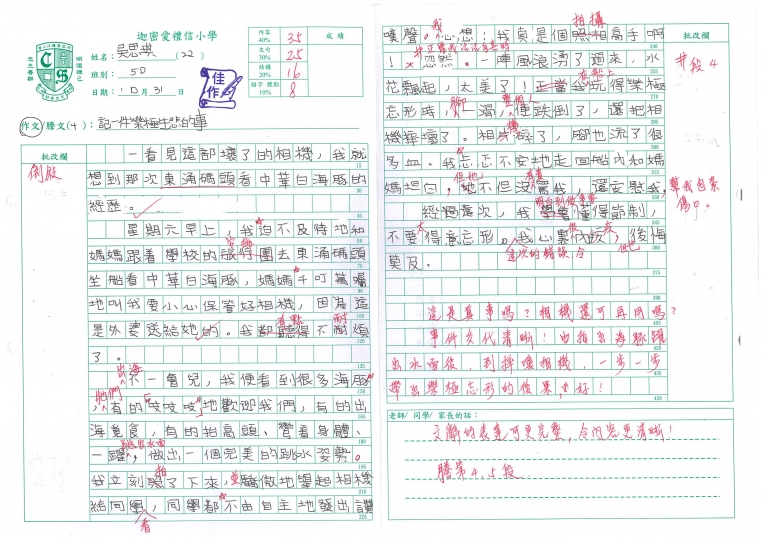 迦密愛禮信小學
姓名：吳思琪(22)
班別：5D
日期：10月31日
佳作
內容 40% 35
文句 30% 25
結構 20% 16
錯字 標點 10% 8
成績
作文/謄文(4)：記一件樂極生悲的事
批改欄
倒敍
一看見這部壞了的相機，我就
想到那次東涌碼頭看中華白海豚的
經歷。
星期六早上，我迫不及待地和
媽媽跟着學校的旅行團去東涌碼頭
坐船看中華白海豚，媽媽千叮萬囑
地叫我要小心保管好相機，因為這
是外婆送給她的。我都聽得不耐煩
了。
出海
不一會兒，我便看到很多海豚
牠們
，有的「吱吱吱」地歡迎我們，有的出
海覓食，有的抬高頭、彎着身體、
跳出水面
一躍，做出一個完美的跳水姿勢。
我立刻照了下來，並驕傲地舉起相機
拍
給同學，同學都不由自主地發出讚
看
批改欄
嘆聲。我心想：我真是個照相高手啊
拍攝
！忽然，一陣風浪湧了過來，水
花飄起，太美了！正當我玩得樂極
忘形時，腳一濕，便跌倒了，還把相
整個人
機摔壞了。相機壞了，腳也流了很
多血。我忐忑不安地走回船內和媽
媽坦白。她不但沒罵我，還安慰我。
但她
有責
經過這次，我學會懂得節制，
明白到做事要
不要得意忘形。我心裏內疚，後悔
太
這次的錯誤令
莫及。
井段4
這是真事嗎？相機還可再用嗎？
事件交代清晰！由拍出海豚躍
出水面後，到摔壞相機，一步一步
帶出樂極忘形的後果，好！
老師/同學/家長的話：
文辭的表達可更完整，令內容更清晰！
謄第4、5段